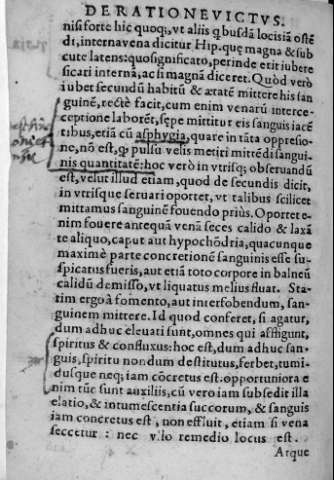 DE RATIONE VICTVS.
nisi forte hic quoq;, vt aliis q̃busdã locis iã ostẽ
dt, interna vena dicitur Hip. quę magna & sub
cute latens: quo significato, perinde erit iubere
secari internã, ac si magnã diceret. Quòd verò
iubet secundũ habitũ & ætatẽ mittere his san
guinẽ, rectè facit, cum enim venarũ interce-
ceptione laborẽt, sępe mittitur eis sanguis iacẽ
tibus, etiã cũ asphygia, quare in tãta oppressio-
ne, nõ est, ꝙ pulsu velis metiri mittẽdi sangui-
nis quantitatẽ: hoc verò in vtrisq; obseruandũ
est, velut illud etiam, quod de secundis dicit,
in vtrisque seruari oportet, vt talibus scilicet
mittamus sanguinẽ fouendo priùs. Oportet e-
nim fouere antequã venã seces calido & laxã
te aliquo, caput aut hypochõdria, quacunque
maximè parte concretionẽ sanguinis esse su-
spicatus fueris, aut etiã toto corpore in balneũ
calidũ demisso, vt liquatus melius fluat. Sta-
tim ergo à fomento, aut inter fobendum, san-
guinem mittere. Id quod conferet, si agatur,
dum adhuc eleuati sunt, omnes qui affligunt,
spiritus & confluxus: hoc est, dum adhuc san-
guis, spiritu nondum destitutus, feruet, tumi-
dusque neq; iam cõcretus est. opportuniora e
nim tũc sunt auxiliis, cũ vero iam subsedit illa
elatio, & intumescentia succorum, & sanguis
iam concretus est, non effluit, etiam si vena
seccetur : nec vllo remedio locus est.
Atque